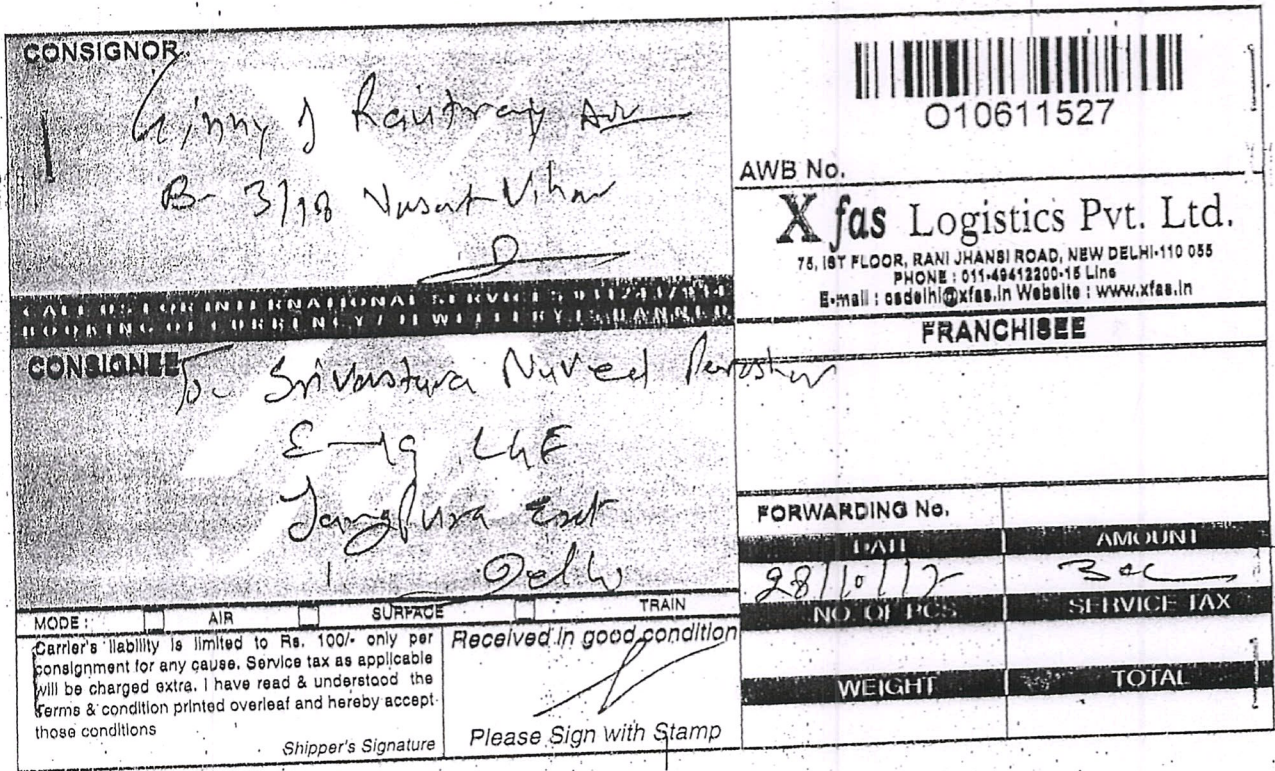 CONSIGNOR
Ginny J Rautray Adv
B- 3/18 Vasant Vihar
BOOKING OF CURRENCY / JEWELLERY IS BANNED
CONSIGNEE
To Srivastava Naved
E-19 LGF
Jangpura Extt
Delhi
MODE : AIR SURFACE TRAIN
Carrier's liability is limited to Rs. 100/- only per
consignment for any cause. Service tax as applicable
will be charged extra. I have read & understood the
terms & condition printed overleaf and hereby accept
those conditions
Shipper's Signature
Received in good condition
Please Sign with Stamp
O10611527
AWB No.
X fas Logistics Pvt. Ltd.
75, IST FLOOR, RANI JHANSI ROAD, NEW DELHI-110 055
PHONE : 011-49412200-15 Line
E-mail : csdelhi@xfas.in Website : www.xfas.in
FRANCHISEE
FORWARDING No.
DATE AMOUNT
28/10/17
NO. OF PCS SERVICE TAX
WEIGHT TOTAL